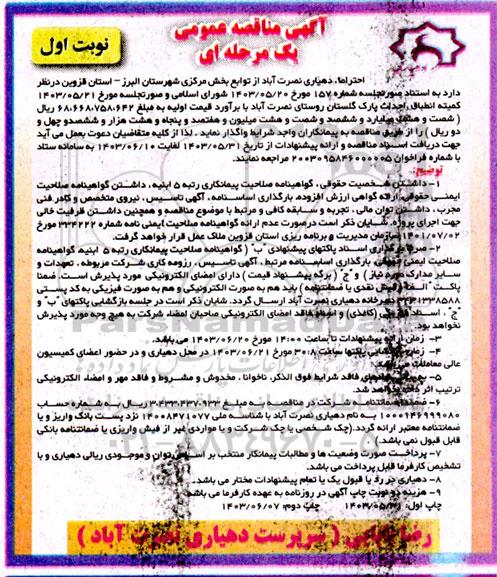 آگهی مناقصه عمومی
یک مرحله ای
نوبت اول
احتراما، دهیاری نصرت آباد از توابع بخش مرکزی شهرستان البرز – استان قزوین درنظر
دارد به استناد صورتجلسه شماره ۱۵۷ مورخ ۱۴۰۳/۰۵/۲۰ شورای اسلامی و صورتجلسه مورخ ۱۴۰۳/۰۵/۲۱
کمیته انطباق، احداث پارک گلستان روستای نصرت آباد با برآورد قیمت اولیه به مبلغ ۶۸،۶۶۸،۷۵۸،۶۴۲ ریال
( شصت و هشت میلیارد و ششصد و شصت و هشت میلیون و هفتصد و پنجاه و هشت هزار و ششصدو چهل و
دو ریال ) را از طریق مناقصه به پیمانکاران واجد شرایط واگذار نماید . لذا از کلیه متقاضیان دعوت بعمل می آید
جهت دریافت اسناد مناقصه و ارائه پیشنهادات از تاریخ ۱۴۰۳/۰۵/۳۱ لغایت ۱۴۰۳/۰۶/۱۰ به سامانه ستاد
با شماره فراخوان ۲۰۰۳۰۹۵۸۴۶۰۰۰۰۰۵ مراجعه نمایند.
توضیح:
۱- داشتن شخصیت حقوقی ، گواهینامه صلاحیت پیمانکاری رتبه ۵ ابنیه ، داشتن گواهینامه صلاحیت
ایمنی حقوقی، ارائه گواهی ارزش افزوده، بارگذاری اساسنامه ، آگهی تاسیس ، نیروی متخصص و کادر فنی
مجرب ، داشتن توان مالی ، تجربه و سابقه کافی و مرتبط با موضوع مناقصه و همچنین داشتن ظرفیت خالی
جهت اجرای پروژه. شایان ذکر است درصورت عدم ارائه گواهینامه صلاحیت ایمنی نامه شماره ۳۳۴۲۲۲ مورخ
۱۴۰۱/۰۷/۰۲ سازمان مدیریت و برنامه ریزی استان قزوین ملاک عمل قرار خواهد گرفت.
۲- صرفا بارگذاری اسناد پاکتهای پیشنهادی "ب" ( گواهینامه صلاحیت پیمانکاری رتبه ۵ ابنیه، گواهینامه
صلاحیت ایمنی حقوقی، بارگذاری اساسنامه مرتبط ، آگهی تاسیس ، رزومه کاری شرکت مربوطه ، تعهدات و
سایر مدارک مورد نیاز ) و "ج" ( برگه پیشنهاد قیمت ) دارای امضای الکترونیکی مورد پذیرش است. ضمنا
پاکت "الف" ( فیش نقدی یا ضمانتنامه ) باید هم به صورت الکترونیکی و هم به صورت فیزیکی به کد پستی
دبیرخانه دهیاری نصرت آباد ارسال گردد. شایان ذکر است در جلسه بازگشایی پاکتهای "ب" و
"ج" ، اسناد فیزیکی (کاغذی) و اسناد فاقد امضای الکترونیکی صاحبان امضاء شرکت به هیچ وجه مورد پذیرش
نخواهد بود.
۳- زمان ارائه پیشنهادات تا ساعت ۱۴:۰۰ مورخ ۱۴۰۳/۰۶/۲۰ می باشد.
۴- زمان بازگشایی پاکتها ساعت ۸:۳۰ مورخ ۱۴۰۳/۰۶/۲۱ در محل دهیاری و در حضور اعضای کمیسیون
عالی معاملات می باشد.
۵- به پیشنهادهای فاقد شرایط فوق الذکر، ناخوانا ، مخدوش و مشروط و فاقد مهر و امضاء الکترونیکی
ترتیب اثر داده نخواهد شد.
۶- ضمانتنامه شرکت در مناقصه به مبلغ ۳،۴۳۳،۴۳۷،۹۳۳ ریال به شماره حساب
۱۰۰۰۰۱۴۶۹۹۹۰۸۰ به نام دهیاری نصرت آباد با شناسه ملی ۱۴۰۰۸۴۷۱۰۷۷ نزد پست بانک واریز و یا
ضمانتنامه معتبر ارائه گردد. (چک شخصی یا چک شرکت و یا مواردی غیر از فیش واریزی یا ضمانتنامه بانکی
قابل قبول نمی باشد.)
۷- پرداخت صورت وضعیت ها و مطالبات پیمانکار منتخب بر اساس توان و موجودی ریالی دهیاری و با
تشخیص کارفرما قابل پرداخت می باشد.
۸- دهیاری در رد یا قبول یک یا تمام پیشنهادات مختار می باشد.
۹- هزینه دو نوبت چاپ آگهی در روزنامه به عهده کارفرما می باشد.
چاپ اول: ۱۴۰۳/۰۵/۳۱ چاپ دوم: ۱۴۰۳/۰۶/۰۷
( سرپرست دهیاری نصرت آباد )